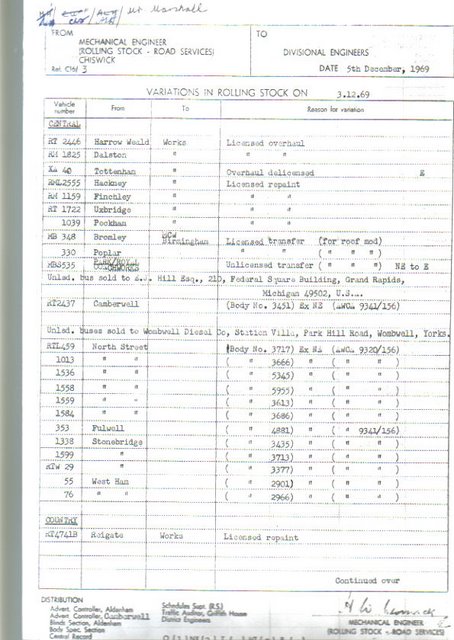 Mr Marshall
FROM
MECHANICAL ENGINEER
(ROLLING STOCK - ROAD SERVICES)
CHISWICK
Ref. C16/ 3
TO
DIVISIONAL ENGINEERS
DATE 5th December, 1969
VARIATIONS IN ROLLING STOCK ON 3.12.69
Vehicle number From To Reason for variation
CENTRAL
RT 2446 Harrow Weald Works Licensed overhaul
RM 1825 Dalston " " "
Xa 40 Tottenham " Overhaul delicensed E
RML2555 Hackney " Licensed repaint
RM 1159 Finchley " " "
RT 1722 Uxbridge " " "
1039 Peckham " " "
MB 348 Bromley MCW Birmingham Licensed transfer (for roof mod)
330 Poplar " " " ( " " " )
MBS535 PARK ROYAL COACHWORKS Unlicensed transfer ( " " " ) NE to E
Unlsd. bus sold to Hill Esq., 21D, Federal Square Building, Grand Rapids,
Michigan 49502, U.S....
RT2437 Camberwell (Body No. 3451) Ex NE (AWCL 9341/156)
Unlsd. buses sold to Wombwell Diesel Co, Station Villa, Park Hill Road, Wombwell, Yorks.
RTL459 North Street (Body No. 3717) Ex NE (AWCL 9320/156)
1013 " " ( " 3666) " ( " " )
1536 " " ( " 5345) " ( " " )
1558 " " ( " 5955) " ( " " )
1559 " " ( " 3613) " ( " " )
1584 " " ( " 3686) " ( " " )
353 Fulwell ( " 4881) " ( " 9341/156)
1338 Stonebridge ( " 3435) " ( " " )
1599 " ( " 3713) " ( " " )
RTW 29 " ( " 3377) " ( " " )
55 West Ham ( " 2901) " ( " " )
76 " " ( " 2966) " ( " " )
COUNTRY
RT4741B Reigate Works Licensed repaint
Continued over
DISTRIBUTION
Advert. Controller, Aldenham
Advert. Controller, Camberwell
Blinds Section, Aldenham
Body Spec. Section
Central Record
Schedules Supt. (R.S.)
Traffic Auditor, Griffith House
District Engineers
MECHANICAL ENGINEER
(ROLLING STOCK - ROAD SERVICES)